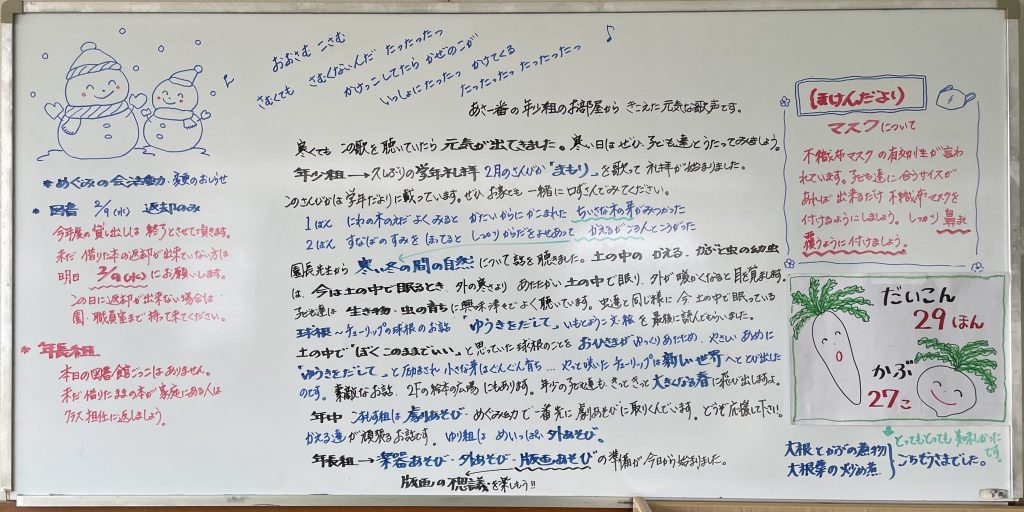 おおさむ こさむ
さむくても さむくないんだ たったったっ
かけっこしてたら かぜのこが
いっしょにたったっ かけてくる
たったったっ たったったっ
あさ一番の年少組のお部屋から きこえた元気な歌声です。
寒くても この歌を聴いていたら 元気が出てきました。寒い日はぜひ、子ども達とうたってみましょう。
年少組→久しぶりの学年礼拝 2月のさんびか「まもり」を歌って礼拝が始まりました。
このさんびかは学年だよりに載っています。ぜひお家でも一緒に口ずさんでみてください。
1ばん にわの木のえだ よくみると かたいからにかこまれ ちいさな木の芽がみつかった
2ばん すなばのすみを ほってると しっかりからだをよせあって かえるがごろんところがった
園長先生から 寒い冬の間の自然について話を聴きました。土の中の かえる、かぶと虫の幼虫
は、今は土の中で眠るとき、外の寒さより あたたかい土の中で眠り、外が暖かくなると目を覚まします。
子ども達は 生き物、虫の育ちに興味津々でよく聴いています。虫達と同じ様に 今 土の中で眠っている
球根 チューリップの球根のお話 「ゆうきをだして」いもとようこ 文絵 を最後に読んでもらいました。
土の中で「ぼくこのままでいい」と思っていた球根のことを おひさまがゆっくりあたため、やさしい あめに
「ゆうきをだして」と励まされ 小さな芽はぐんぐん育ち… やっと咲いたチューリップは新しい世界へととび出した
のです。素敵なお話、2Fの絵本の広場にもあります。年少の子ども達も、きっときっと大きくなる春に花ひ出しますよ。
年中 こすもす組は 劇あそび・めぐみの力で一番先に劇あそびに取りくんでいます。どうぞ応援して下さい。
かえる達が頑張るお話です。ゆり組は めいっぱい 外あそび。
年長組→楽器あそび・外あそび・版画あそびの準備が今日から始まりました。
版画の不思議を楽しもう!!
*めぐみの会活動・変更のおしらせ
*図書 2/9(水) 返却のみ
今年度の貸し出しは 終了とさせて頂きます。
未だ 借りた本の返却が出来ていない方は
明日 2/9(水)にお願いします。
この日に返却が出来ない場合は
園・職員室まで 持って来てください。
*年長組
本日の図書館ごっこはありません。
未だ借りたままの本が家庭にある人は
クラス担任に返しましょう。
ほけんだより
マスクについて
不織布マスクの有効性が言わ
れています。子ども達に合うサイズが
あれば 出来るだけ 不織布マスクを
付けるようにしましょう。しっかり鼻を
覆うように付けましょう。
だいこん
29ほん
かぶ
27こ
とってもとっても 美味しかった
です。
大根とかぶの煮物
大根葉の炒め煮
ごちそうさまでした。